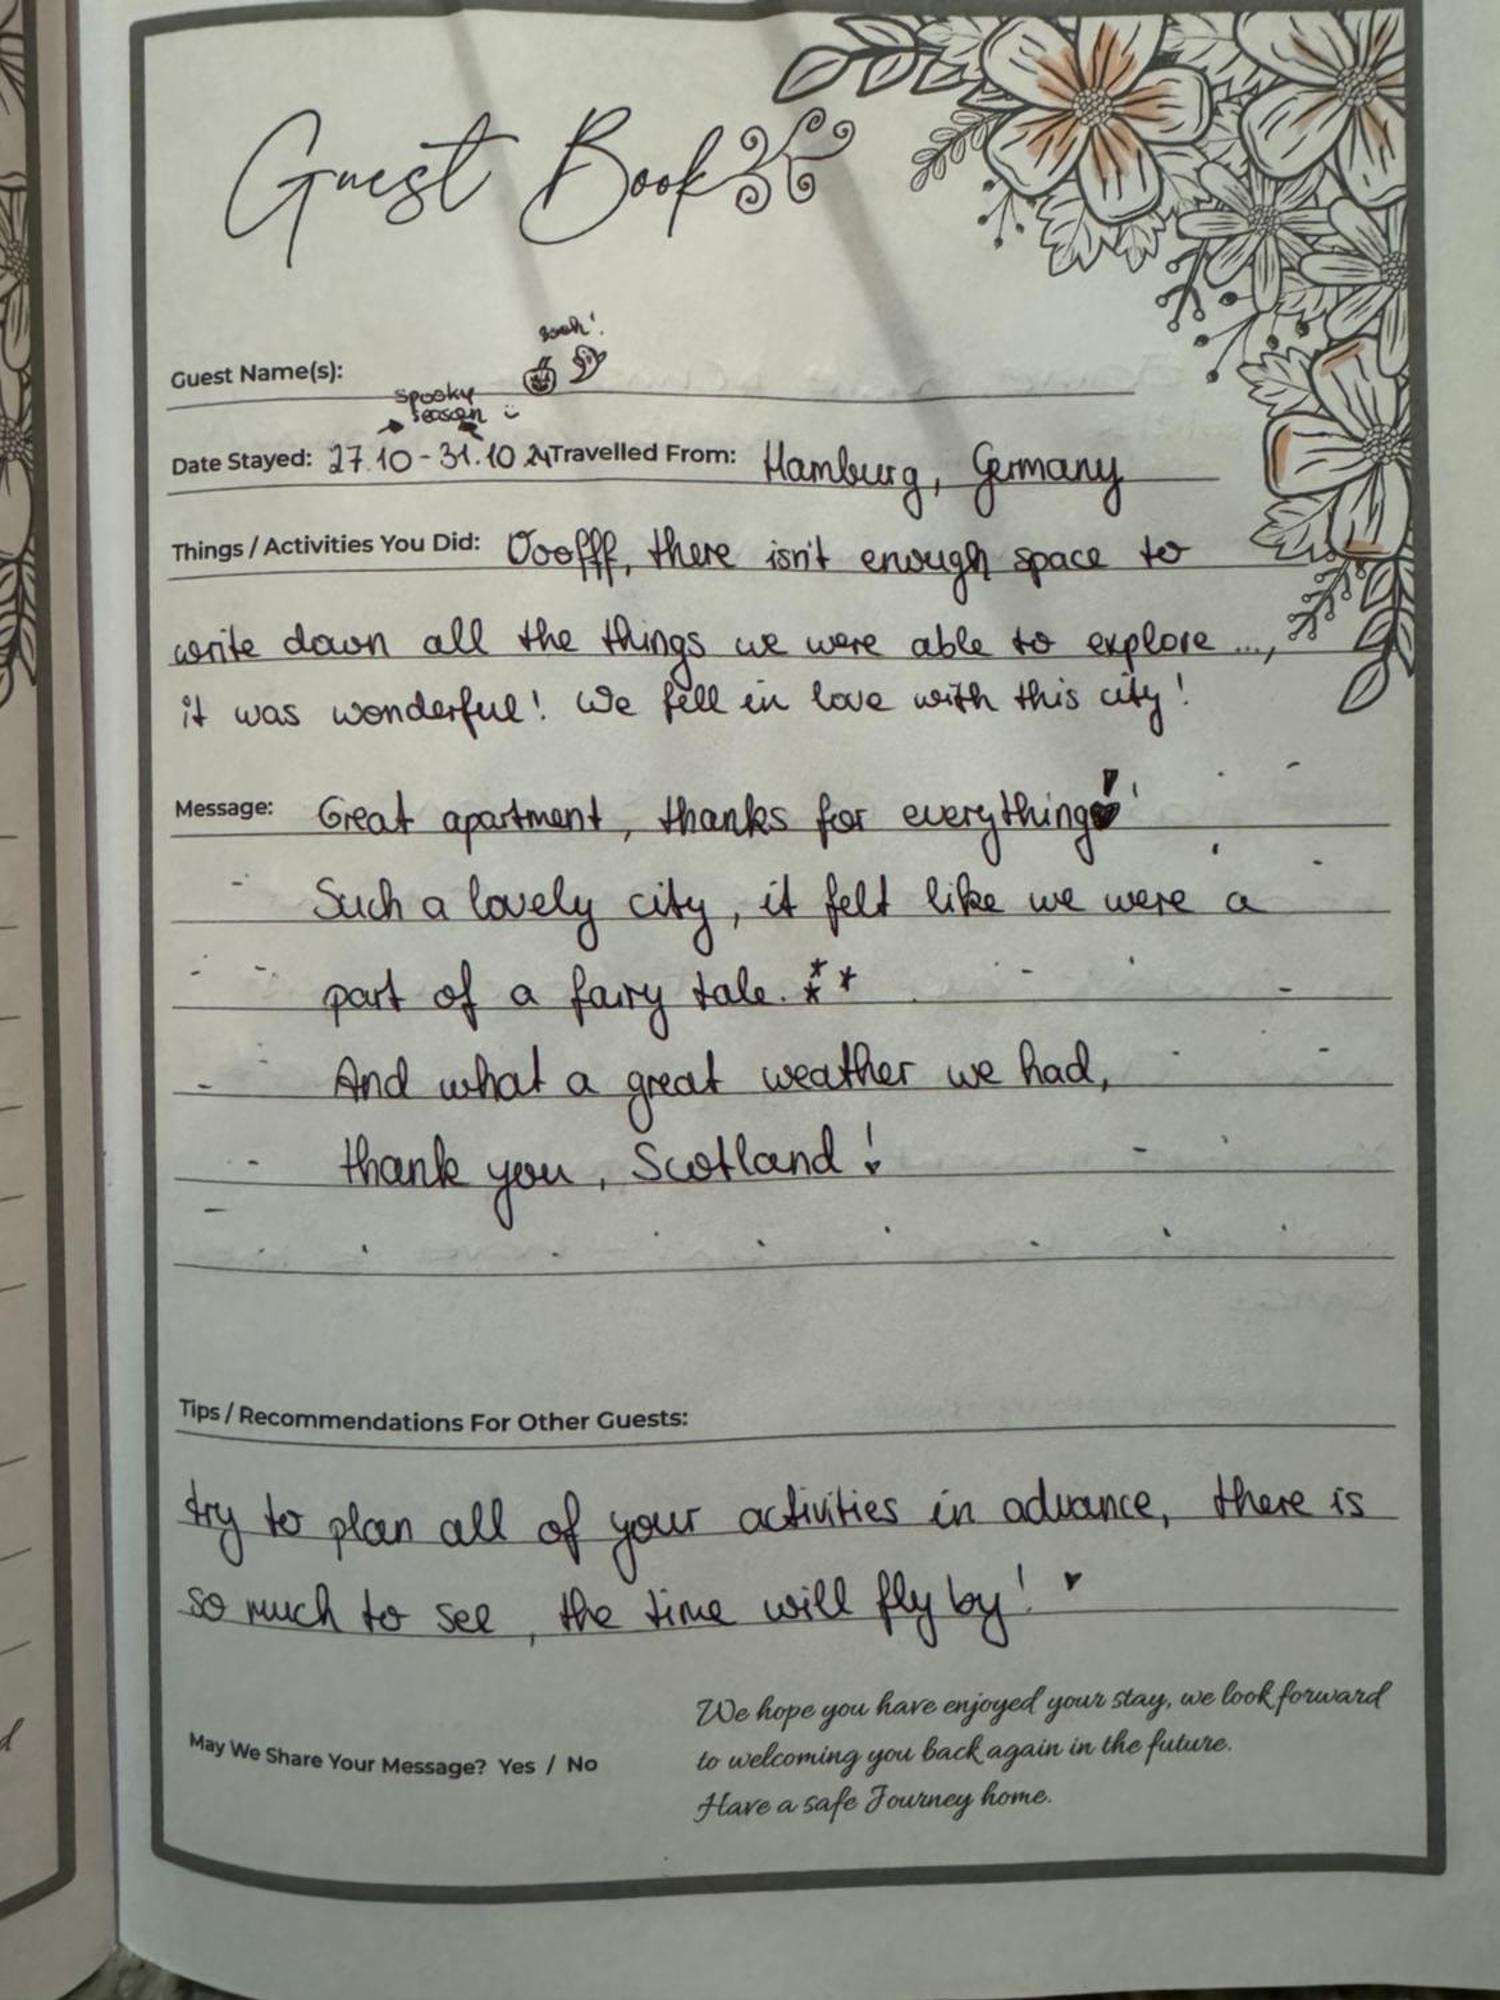 Guest Book
Guest Name(s):
spooky
season
Date Stayed: 27.10 - 31.10.24 Travelled From: Hamburg, Germany
Things / Activities You Did: Ooofff, there isn't enough space to
write down all the things we were able to explore ...,
it was wonderful! We fell in love with this city!
Message: Great apartment, thanks for everything!
Such a lovely city, it felt like we were a
part of a fairy tale.
And what a great weather we had,
thank you, Scotland!
Tips / Recommendations For Other Guests:
try to plan all of your activities in advance, there is
so much to see, the time will fly by!
We hope you have enjoyed your stay, we look forward
to welcoming you back again in the future.
Have a safe Journey home.
May We Share Your Message? Yes / No